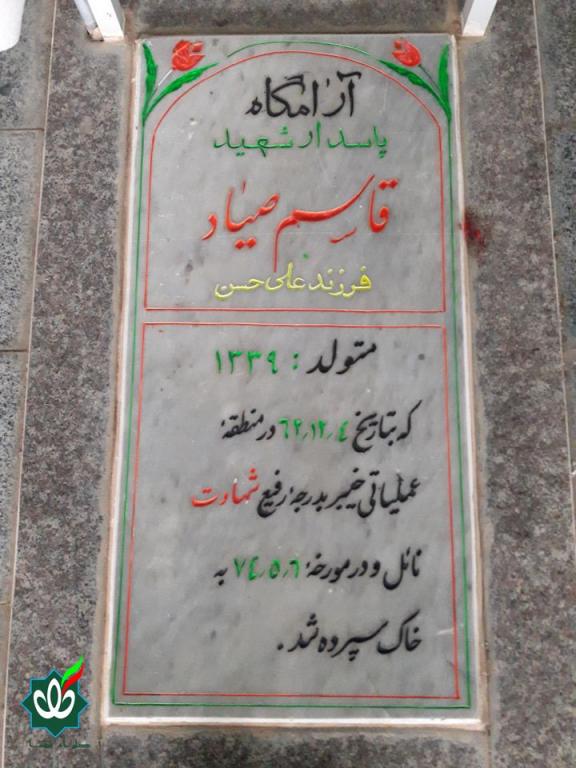 آرامگاه
پاسدار شهید
قاسم صیاد
فرزند علی حسن
متولد : ۱۳۳۹
که بتاریخ ۶۲٫۱۲٫۴ در منطقهٔ
عملیاتی خیبر بدرجهٔ رفیع شهادت
نائل و در مورخهٔ ۷۴٫۵٫۶ به
خاک سپرده شد .